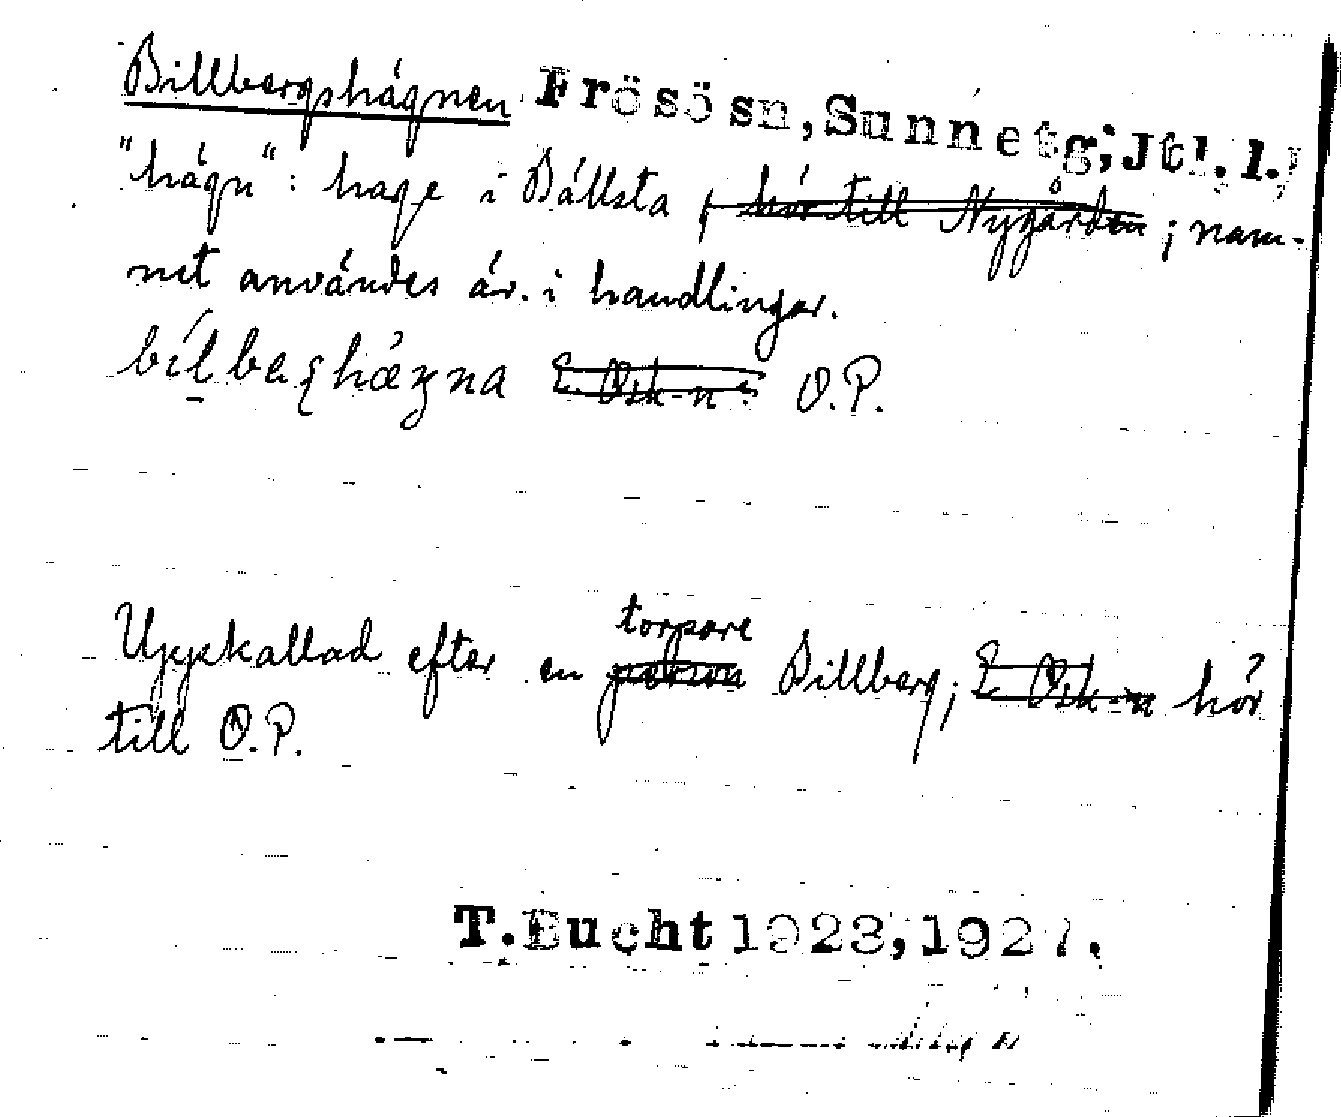 Billbergshägnen Frösösn, Sunnetg; Jtl. l.
"hägn": hage i Bällsta, hör till Nygården; nam-
net användes äv. i handlingar.
O.P.
torpare
Uppkallad efter en person Billberg; E. Osk-n hör
till O.P.
T. Bucht 1923, 1927.